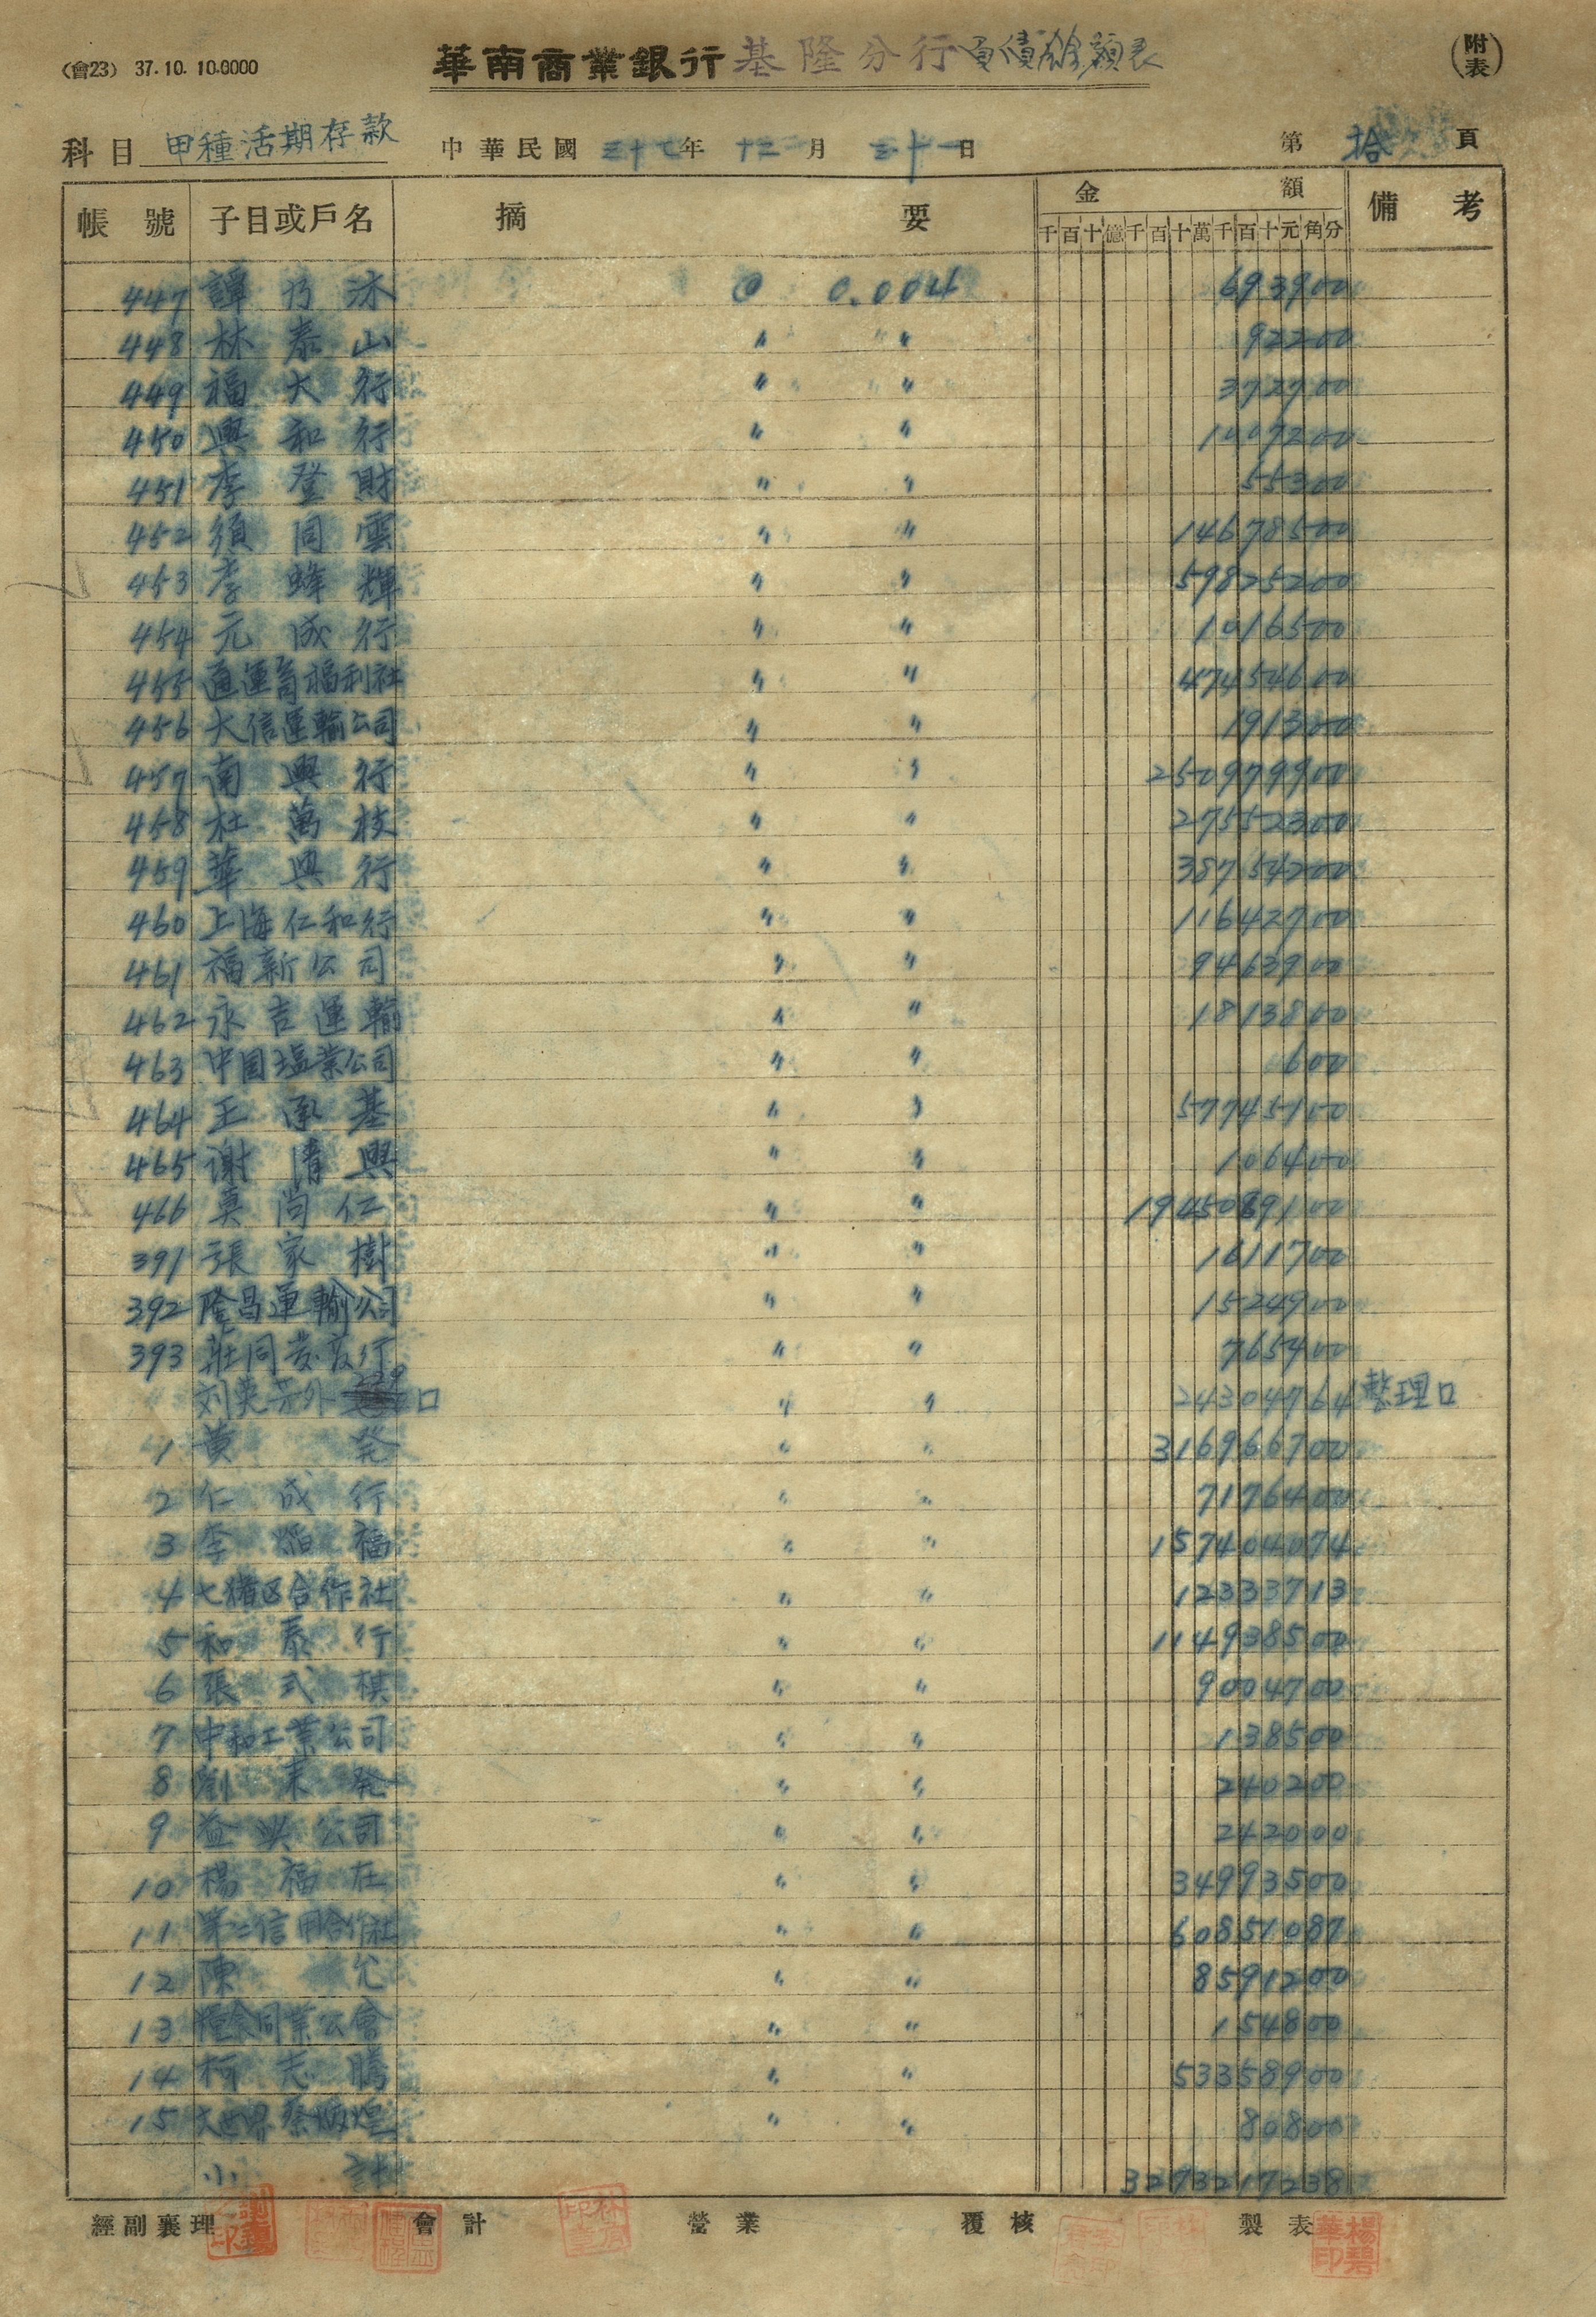 (會23) 37.10.10.0000 華南商業銀行基隆分行負債餘額表 (附表)
科目 甲種活期存款 中華民國三十七年十二月三十一日 第拾頁
帳號 子目或戶名 摘要 金額 備考
千百十億千百十萬千百十元角分
447 譚乃沐 @ 0.004 693900
448 林泰山 〃 〃 92200
449 福大行 〃 〃 372700
450 興和行 〃 〃 1007200
451 李登財 〃 〃 55300
452 須同雲 〃 〃 14678500
453 李蜂輝 〃 〃 59825200
454 元成行 〃 〃 1016500
455 通運首福利社 〃 〃 47454600
456 大信運輸公司 〃 〃 191300
457 南興行 〃 〃 250979900
458 杜萬枝 〃 〃 27552300
459 華興行 〃 〃 38754200
460 上海仁和行 〃 〃 11642700
461 福新公司 〃 〃 9463900
462 永吉運輸 〃 〃 1813800
463 中国塩業公司 〃 〃 600
464 王承基 〃 〃 57745100
465 谢清興 〃 〃 106400
466 莫尚仁 〃 〃 1945089100
391 張家樹 〃 〃 1611700
392 隆昌運輸公司 〃 〃 1524900
393 莊同發行 〃 〃 765400
刘英芳外 口 〃 〃 24304764 整理口
1 黄発 〃 〃 316966700
2 仁成行 〃 〃 7176400
3 李焰福 〃 〃 157404074
4 七猪区合作社 〃 〃 12333713
5 和泰行 〃 〃 114938500
6 張式棋 〃 〃 9004700
7 中和工業公司 〃 〃 138500
8 劉来発 〃 〃 240200
9 益興公司 〃 〃 242000
10 楊福在 〃 〃 34993500
11 第二信用合作社 〃 〃 60851087
12 陳允 〃 〃 8591200
13 糧食同業公會 〃 〃 154800
14 柯志騰 〃 〃 53358900
15 大世界蔡炳煌 〃 〃 80800
小計 3273217238
經副襄理 會計 營業 覆核 製表
楊碧華印